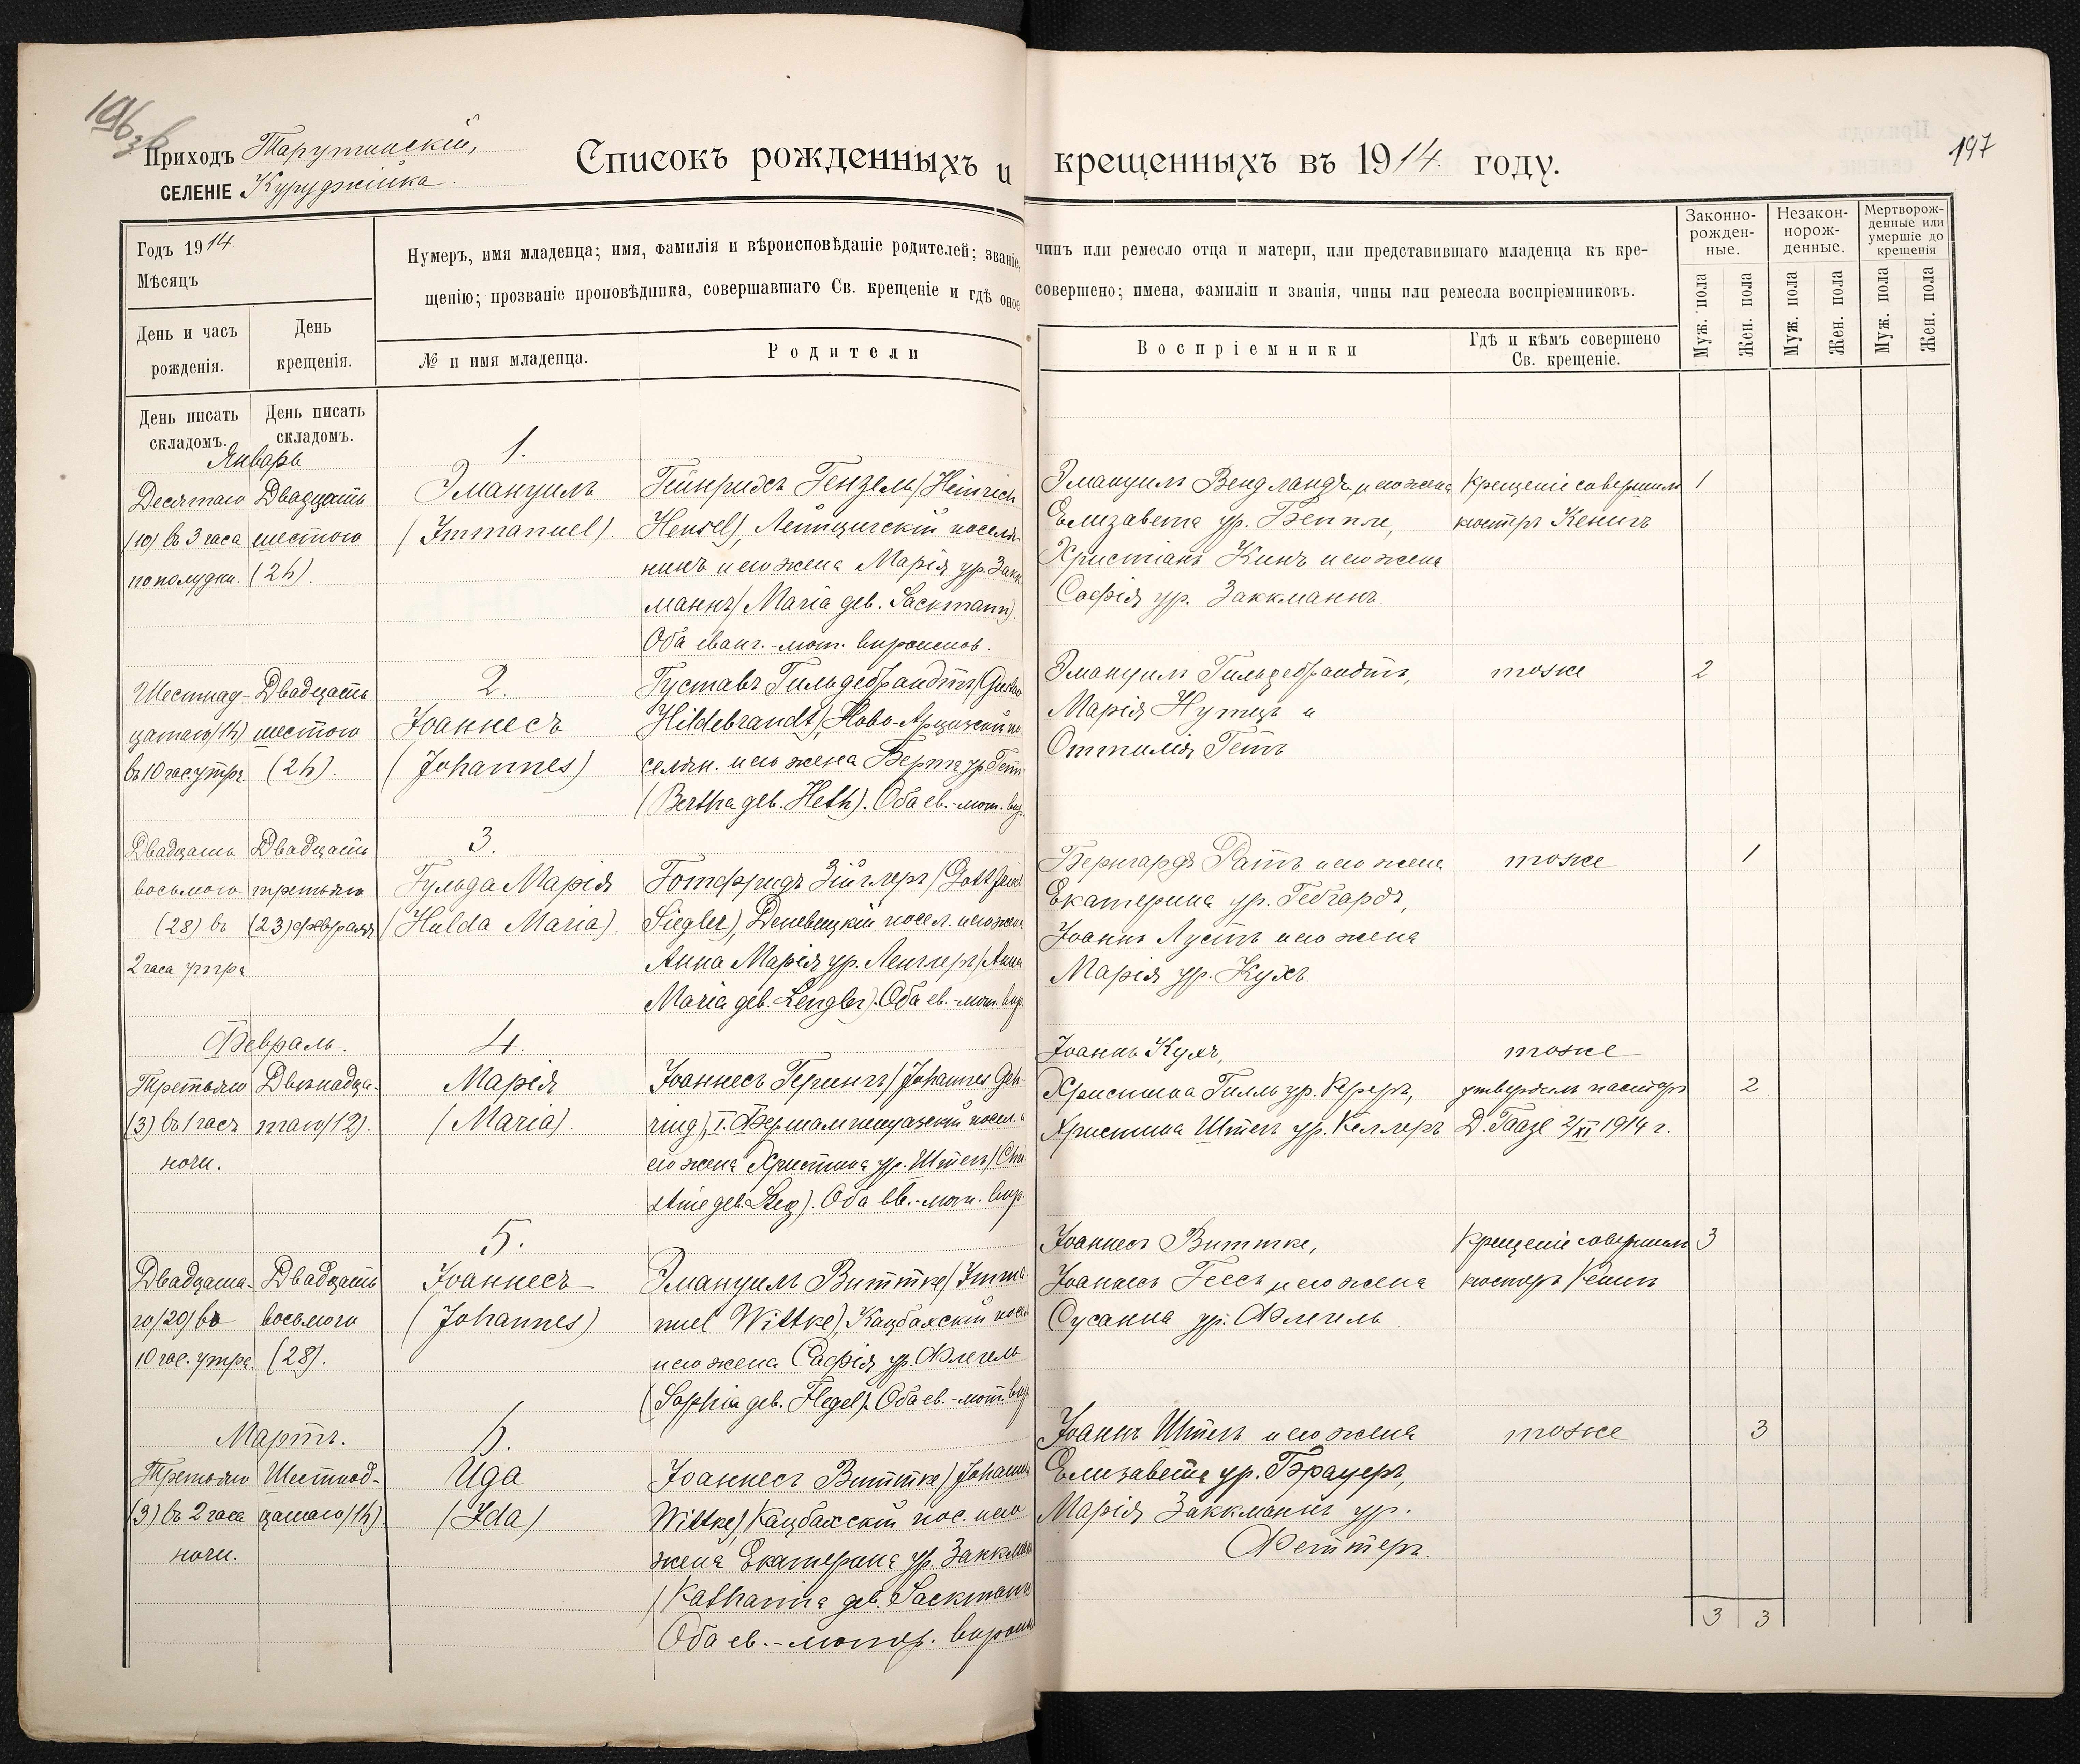 197
Приходъ Тарутинскій,
селеніе Куруджіика.
Списокъ рожденныхъ и крещенныхъ въ 1914 году.
Годъ 1914
Мѣсяцъ
День и часъ рожденія.
День крещенія.
Нумеръ, имя младенца; имя, фамилія и вѣроисповѣданіе родителей; званіе, чинъ или ремесло отца и матери, или представившаго младенца къ кре-
щенію; прозваніе проповѣдника, совершавшаго Св. крещеніе и гдѣ оное совершено; имена, фамиліи и званія, чины или ремесла воспріемниковъ.
№ и имя младенца.
Родители
Воспріемники
Гдѣ и кѣмъ совершено
Св. крещеніе.
Законно-
рожден-
ные.
Незакон-
норож-
денные.
Мертворож-
денные или
умершіе до
крещенія
Муж. пола
Жен. пола
Муж. пола
Жен. пола
Муж. пола
Жен. пола
День писать
складомъ.
День писать
складомъ.
Январь
Десятаго
(10) въ 3 часа
пополудни.
Двадцать
шестого
(26).
1.
Эмануилъ
(Immanuel).
Гейнрихъ Гензель (Heinrich
Hensel), Лейпцигскій поселя-
нинъ и его жена Марія ур. Закк-
маннъ (Maria geb. Sackmann).
Оба еванг.-лют. вѣроиспов.
Эмануилъ Вендландъ и его жена
Елизавета ур. Беппле,
Христіанъ Кинъ и его жена
Софія ур. Заккманнъ.
Крещеніе совершилъ
кюстеръ Кенигъ
1
Шестнад-
цатаго (16)
въ 10 час. утра.
Двадцать
шестого
(26).
2.
Іоаннесъ
(Johannes)
Густавъ Гильдебрандтъ (Gustav
Hildebrandt), Ново-Арцизскій по-
селян. и его жена Берта ур. Гетъ
(Bertha geb. Heth). Оба ев.-лют. вѣр.
Эмануилъ Гильдебрандтъ,
Марія Нутцъ и
Оттилія Гетъ
тоже
2
Двадцать
восьмого
(28) въ
2 часа утра
Двадцать
третьяго
(23) февраля
3.
Гульда Марія
(Hulda Maria).
Готфридъ Зиглеръ (Gottfried
Siegler), Деневицкій посел. и его жена
Анна Марія ур. Ленглеръ (Anna
Maria geb. Lengler). Оба ев.-лют. вѣр.
Бернгардъ Ратъ и его жена
Екатерина ур. Гебгардъ,
Іоаннъ Лустъ и его жена
Марія ур. Кухъ.
тоже
1
Февраль.
Третьяго
(3) въ 1 часъ
ночи.
Двѣнадца-
таго (12).
4.
Марія
(Maria).
Іоаннесъ Герингъ (Johannes Geh-
ring), I. Фершампенуазскій посел. и
его жена Христина ур. Штегъ (Chri-
stine geb. Steg). Оба ев.-лют. вѣр.
Іоаннъ Кухъ,
Христина Гилль ур. Кереръ,
Христина Штегъ ур. Келлеръ
тоже
утвердилъ пасторъ
Д. Гаазе 2/XI 1914 г.
2
Двадцата-
го (20) въ
10 час. утра.
Двадцать
восьмого
(28).
5.
Іоаннесъ
(Johannes)
Эмануилъ Виттке (Imma-
nuel Wittke), Кацбахскій посел.
и его жена Софія ур. Флегель
(Sophia geb. Flegel). Оба ев.-лют. вѣр.
Іоаннесъ Виттке,
Іоаннесъ Гесъ и его жена
Сусанна ур. Флегель.
Крещеніе совершилъ
кюстеръ Кенигъ
3
Мартъ.
Третьяго
(3) въ 2 часа
ночи.
Шестнад-
цатаго (16).
6.
Ида
(Ida)
Іоаннесъ Виттке (Johannes
Wittke) Кацбахскій пос. и его
жена Екатерина ур. Заккманнъ
(Katharina geb. Sackmann
Оба ев.-лютер. вѣроисп.
Іоаннъ Штегъ и его жена
Елизавета ур. Брауеръ,
Марія Заккманнъ ур.
Феттеръ.
тоже
3
3
3